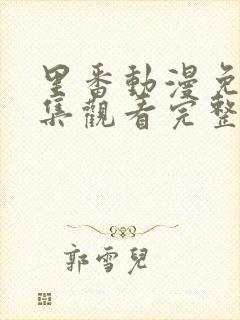 里番動漫免
集觀看完整
郭雪兒